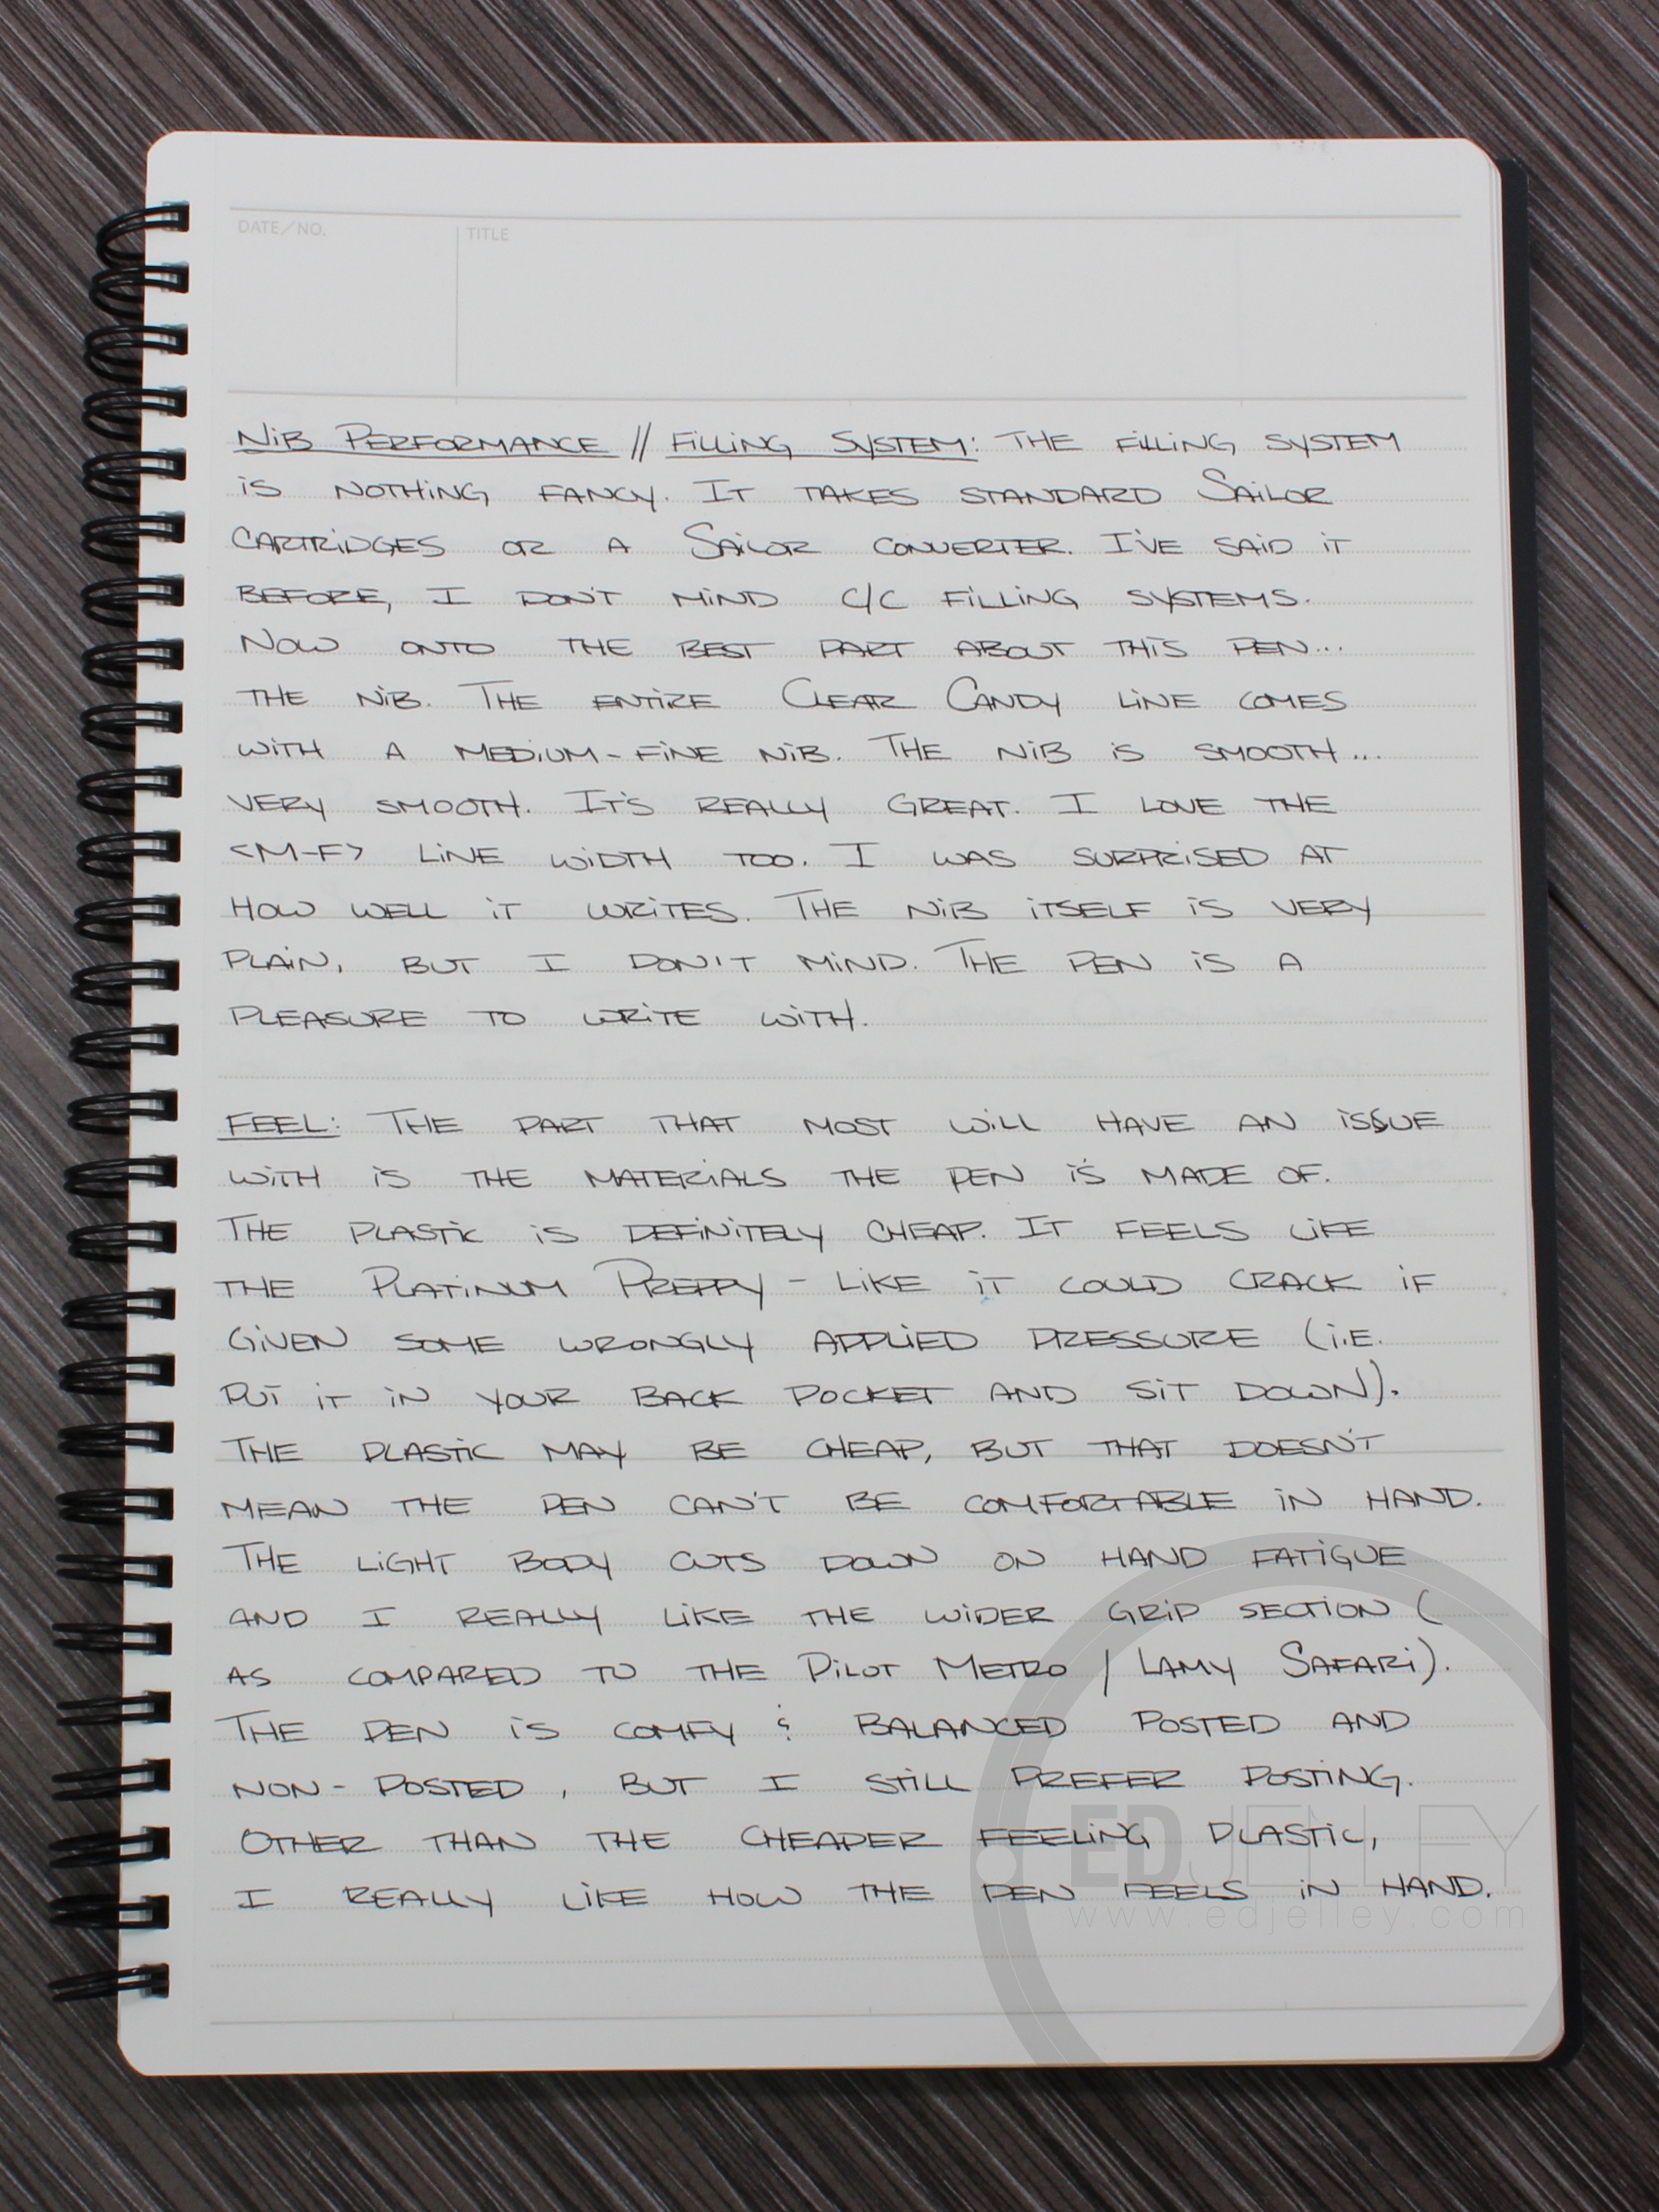 DATE/NO.
TITLE
NiB PERFORMANCE // FiLLiNG SYSTEM: THE FiLLING SYSTEM
iS NOTHiNG FANCY. IT TAKES STANDARD SAiLOR
CARTRiDGES OR A SAiLOR CONVERTER. I'VE SAiD iT
BEFORE, I DON'T MiND C/C FiLLiNG SYSTEMS.
NOW ONTO THE BEST PART ABOUT THiS PEN...
THE NiB. THE ENTiRE CLEAR CANDY LiNE COMES
WiTH A MEDiUM-FiNE NiB. THE NiB iS SMOOTH...
VERY SMOOTH. IT'S REALLY GREAT. I LOVE THE
<M-F> LiNE WiDTH TOO. I WAS SURPRiSED AT
HOW WELL iT WRiTES. THE NiB iTSELF iS VERY
PLAiN, BUT I DON'T MiND. THE PEN iS A
PLEASURE TO WRiTE WiTH.
FEEL: THE PART THAT MOST WiLL HAVE AN iSSUE
WiTH iS THE MATERiALS THE PEN iS MADE OF.
THE PLASTiC iS DEFiNiTELY CHEAP. IT FEELS LiKE
THE PLATiNUM PREPPY - LiKE iT COULD CRACK iF
GiVEN SOME WRONGLY APPLiED PRESSURE (i.E.
PUT iT iN YOUR BACK POCKET AND SiT DOWN).
THE PLASTiC MAY BE CHEAP, BUT THAT DOESN'T
MEAN THE PEN CAN'T BE COMFORTABLE iN HAND.
THE LiGHT BODY CUTS DOWN ON HAND FATiGUE
AND I REALLY LiKE THE WiDER GRiP SECTiON (
AS COMPARED TO THE PiLOT METRO / LAMY SAFARi).
THE PEN iS COMFY & BALANCED POSTED AND
NON-POSTED, BUT I STiLL PREFER POSTiNG.
OTHER THAN THE CHEAPER FEELiNG PLASTiC,
I REALLY LiKE HOW THE PEN FEELS iN HAND.
EDJELLEY
www.edjelley.com